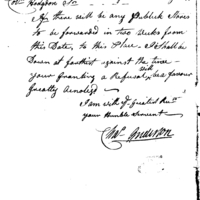 Hodgdon
If there will be any Publick Stores
to be forwarded in two weeks from
this Date, to this Place I shall be
Down at farthest against the time
your Granting a Refusal will be a favour
greatly
I am with the greatest
your Humble Servant
Anderson